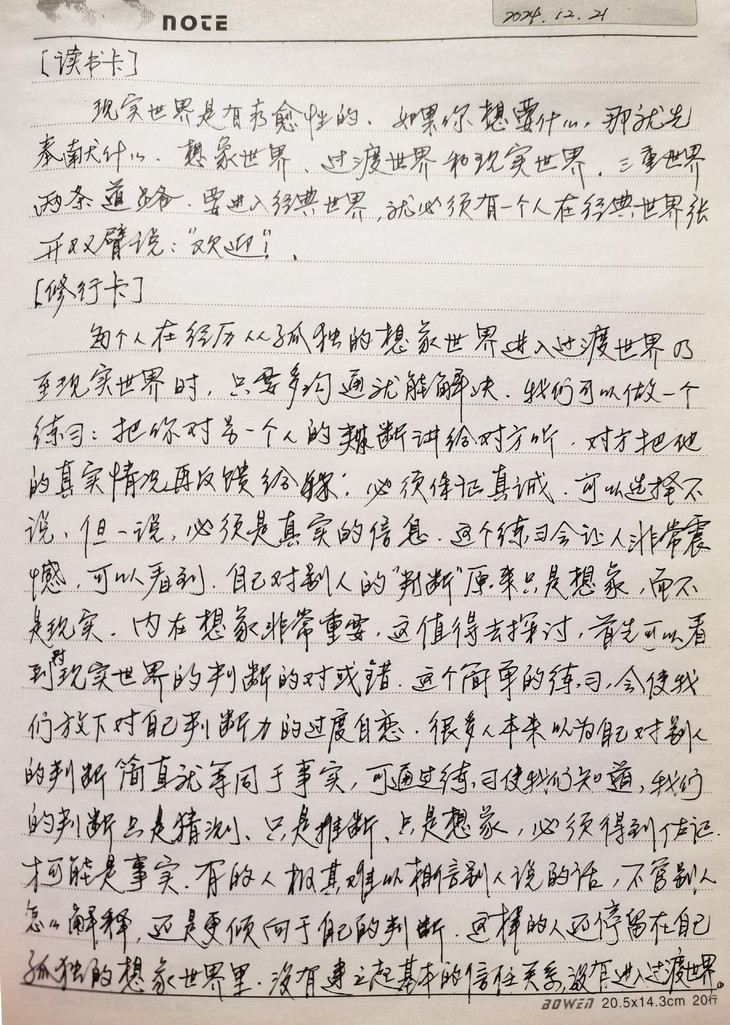 NOTE
2024.12.21
[读书卡]
现实世界是有疗愈性的。如果你想要什么,那就先
奉献什么。想象世界、过渡世界和现实世界,三重世界
两条道路。要进入经典世界,就必须有一个人在经典世界张
开双臂说:“欢迎!”。
[修行卡]
每个人在经历从孤独的想象世界进入过渡世界乃
至现实世界时,只要多沟通就能解决。我们可以做一个
练习:把你对另一个人的判断讲给对方听,对方把他
的真实情况再反馈给你;必须保证真诚,可以选择不
说,但一说,必须是真实的信息。这个练习会让人非常震
憾,可以看到,自己对别人的“判断”原来只是想象,而不
是现实。内在想象非常重要,这值得去探讨,首先可以看
到对现实世界的判断的对或错。这个简单的练习,会使我
们放下对自己判断力的过度自恋。很多人本来以为自己对别人
的判断简直就等同于事实,可通过练习使我们知道,我们
的判断只是猜测、只是推断、只是想象,必须得到佐证
才可能是事实。有的人极其难以相信别人说的话,不管别人
怎么解释,还是更倾向于自己的判断。这样的人还停留在自己
孤独的想象世界里。没有建立起基本的信任关系,没有进入过渡世界。
BOWEN 20.5x14.3cm 20行